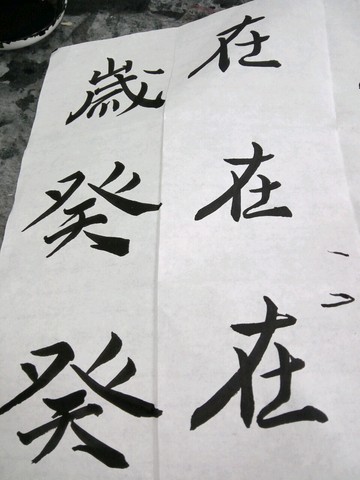 在在在
歲癸癸